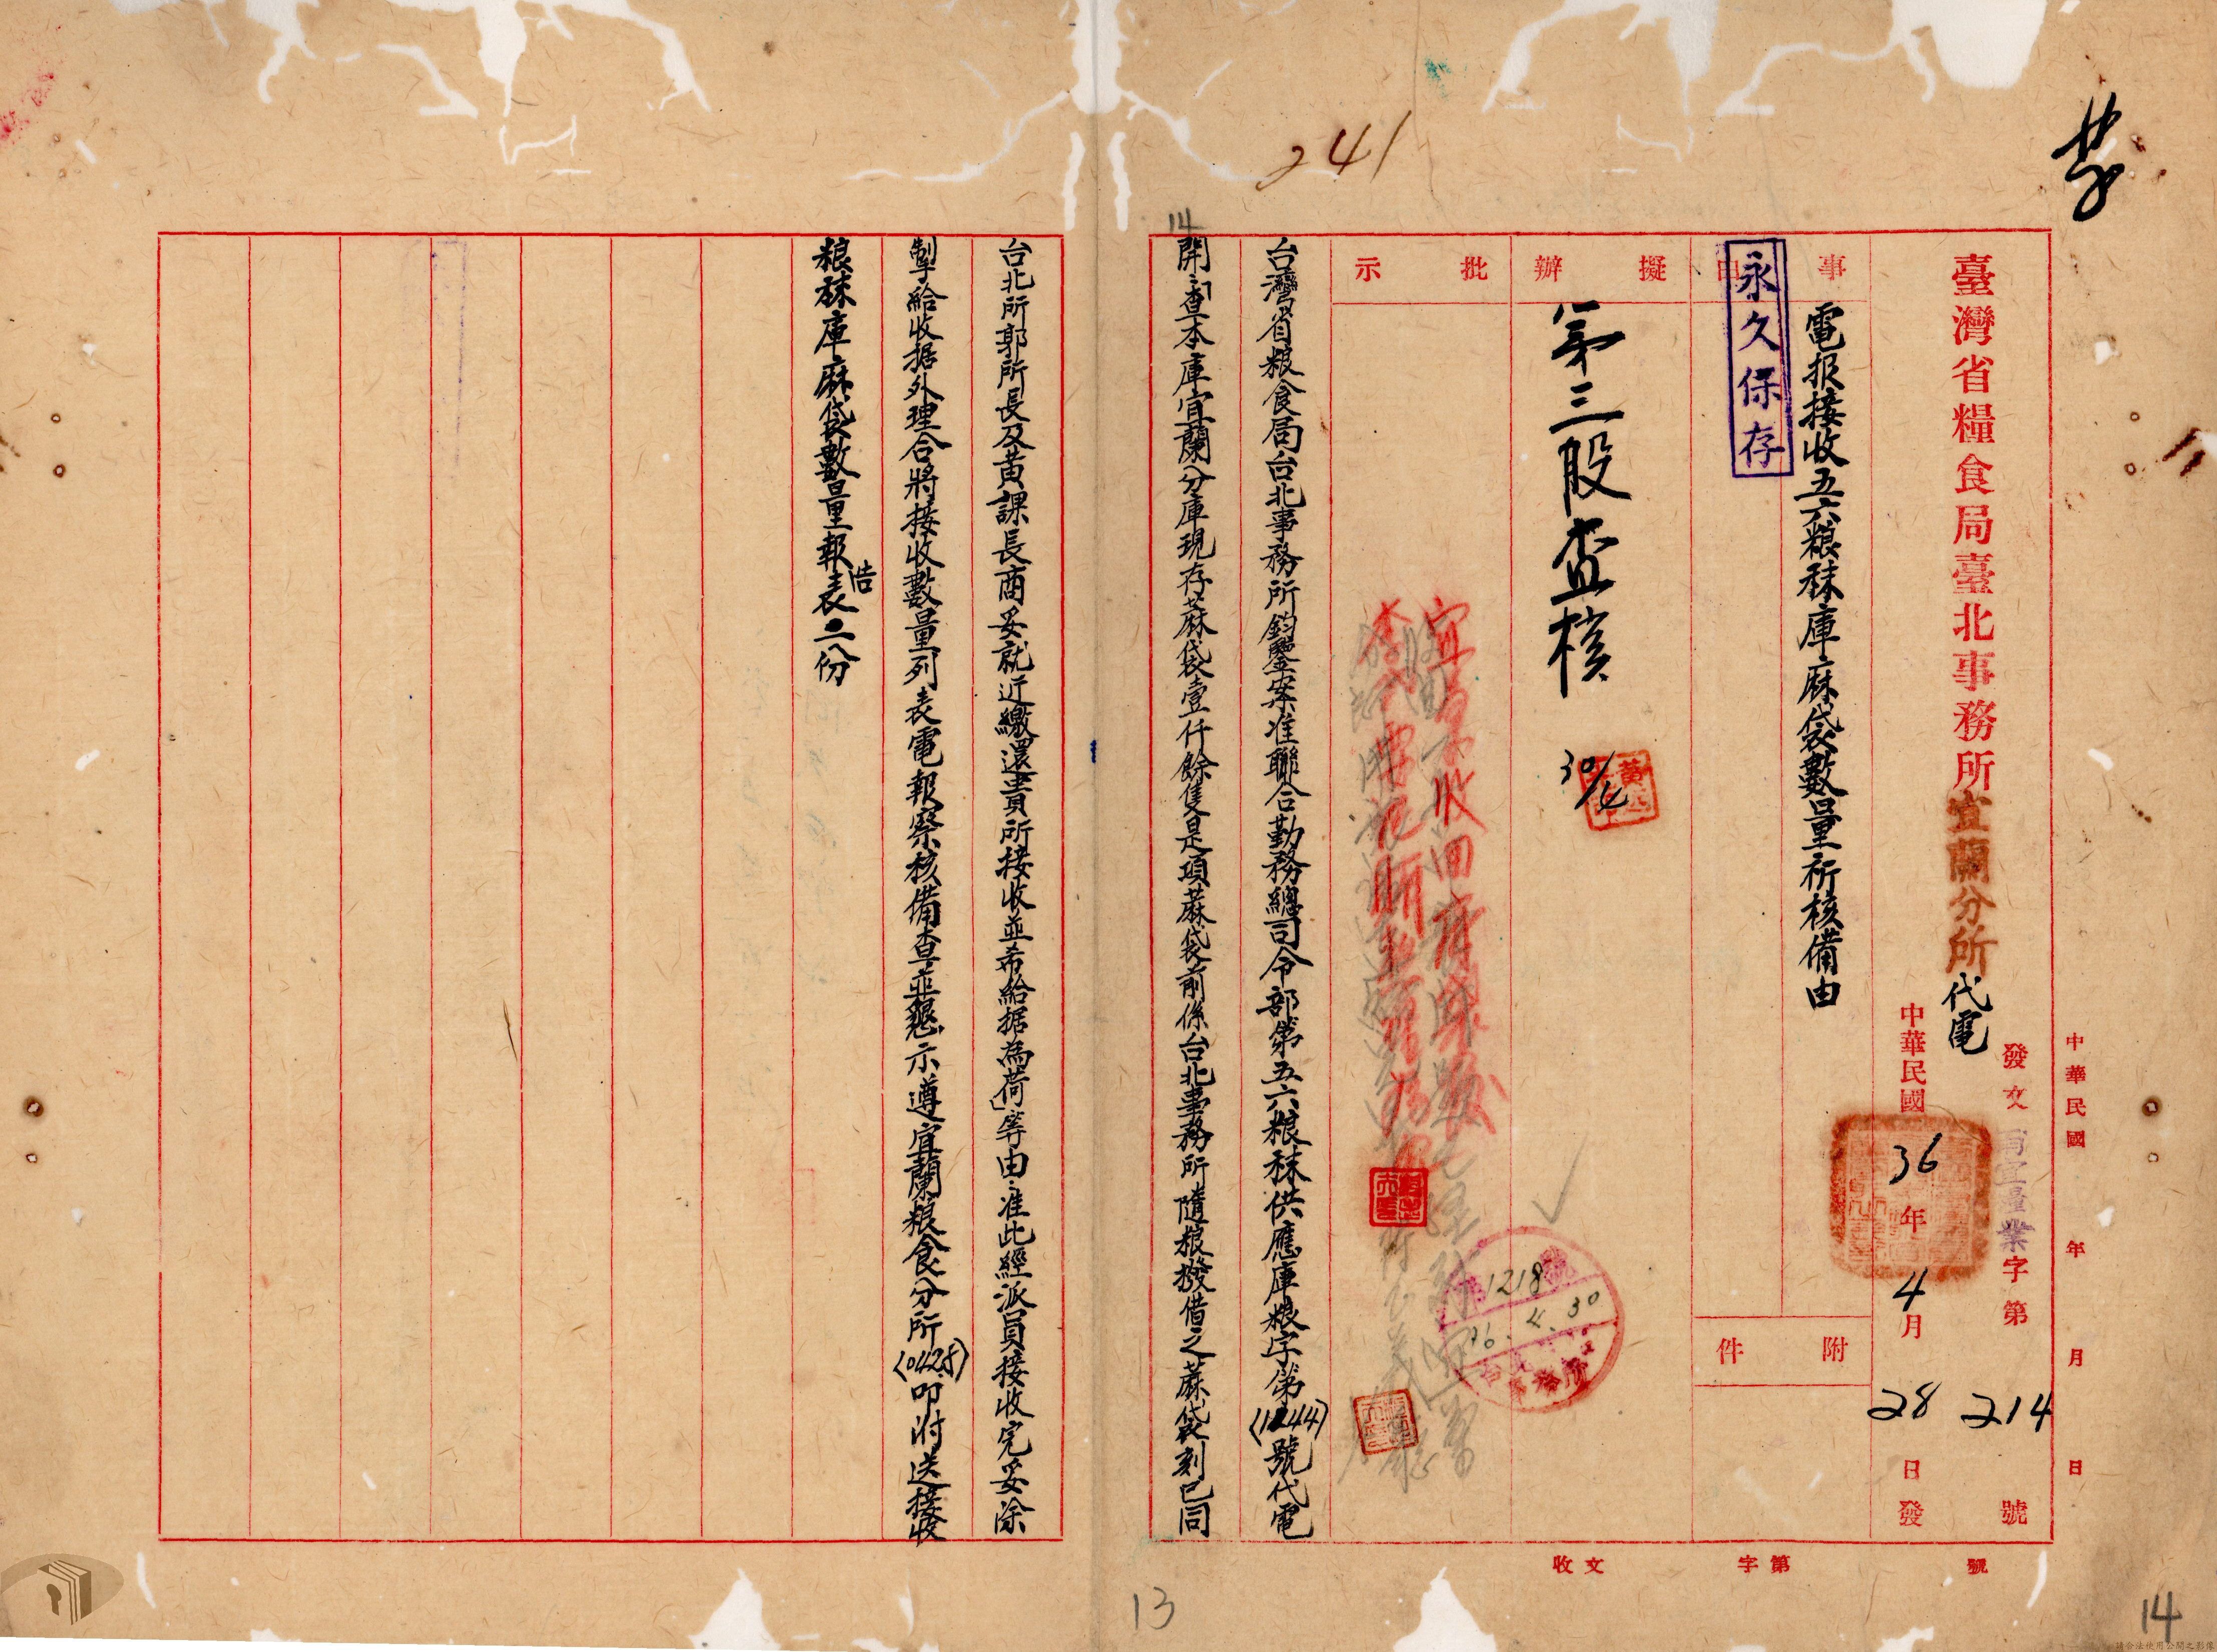 中華民國 年 月 日
發文 宜量業字第 214 號
臺灣省糧食局臺北事務所宜蘭分所代電
中華民國 36 年 4 月 28 日發
事由
電报接收五六粮秣庫麻袋數量祈核備由
永久保存
附件
擬辦
第三股查核 30/4
批示
1218
36.4.30
241
台灣省粮食局台北事務所鈞鑒案准聯合勤務總司令部第五六粮秣供應庫粮字第(1244)號代電
開:「查本庫宜蘭分庫現存蔴袋壹仟餘隻是項蔴袋前係台北事務所隨粮撥借之蔴袋刻已同
台北所郭所長及黃課長商妥就近繳還貴所接收並希給据為荷」等由准此經派員接收完妥除
掣給收据外理合將接收數量列表電報察核備查並懇示遵宜蘭粮食分所(0428)叩附送接收
粮秣庫麻袋數量報告表二份
收文 字第 號
13
14